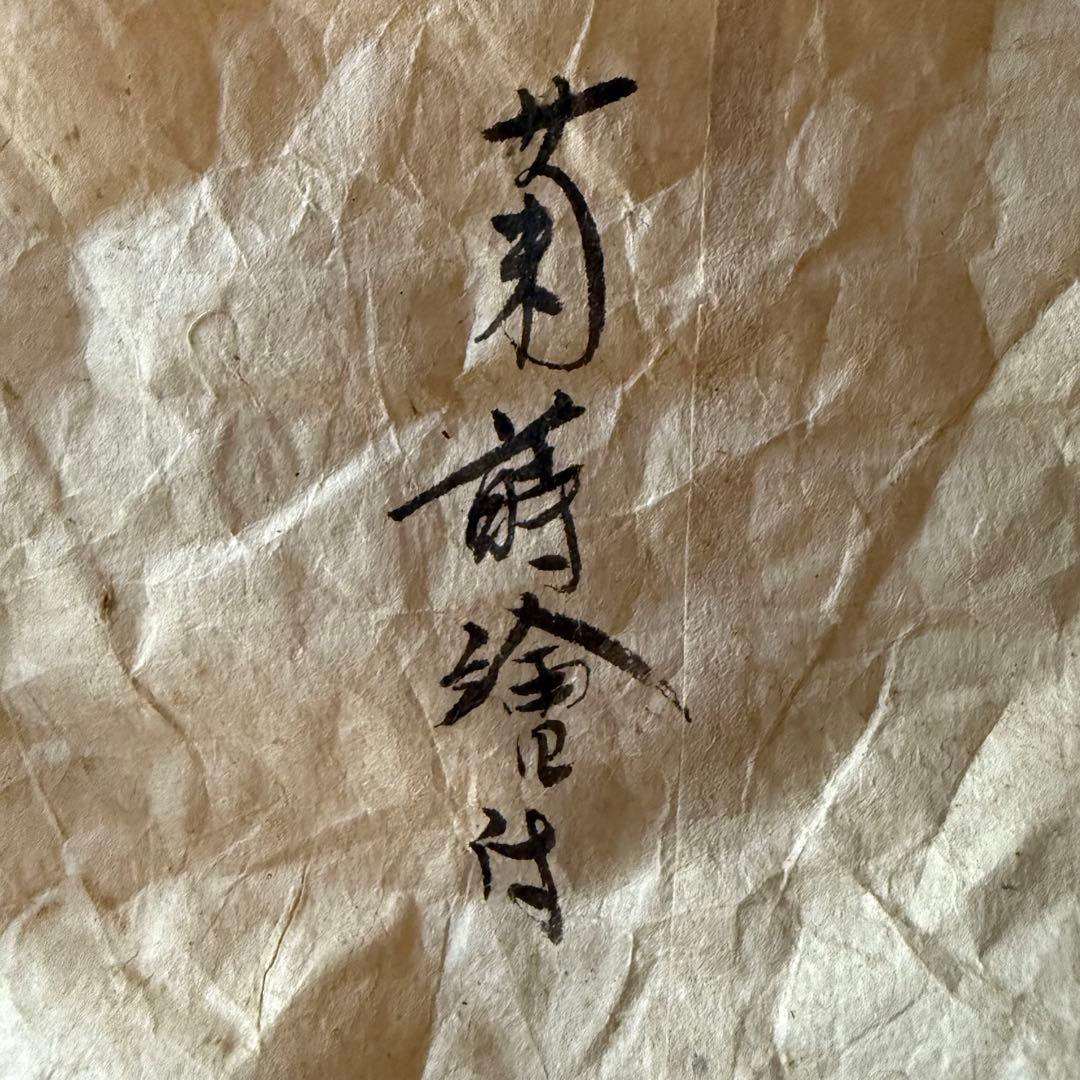 菊蒔繪付